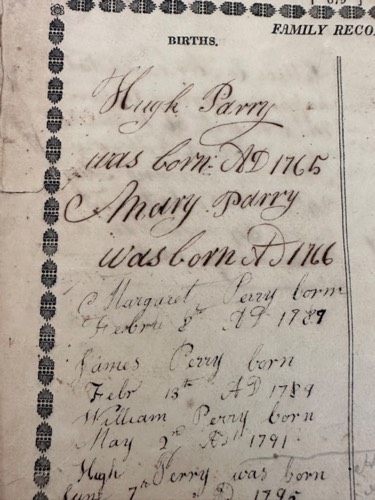 679
FAMILY RECO
BIRTHS.
Hugh Parry
was born AD 1765
Mary Parry
was born AD 1766
Margaret Perry born
Febru 8th AD 1789
James Perry born
Febr 13th AD 1789
William Perry born
May 2nd AD 1791
Hugh Perry was born
June 7th AD 1795